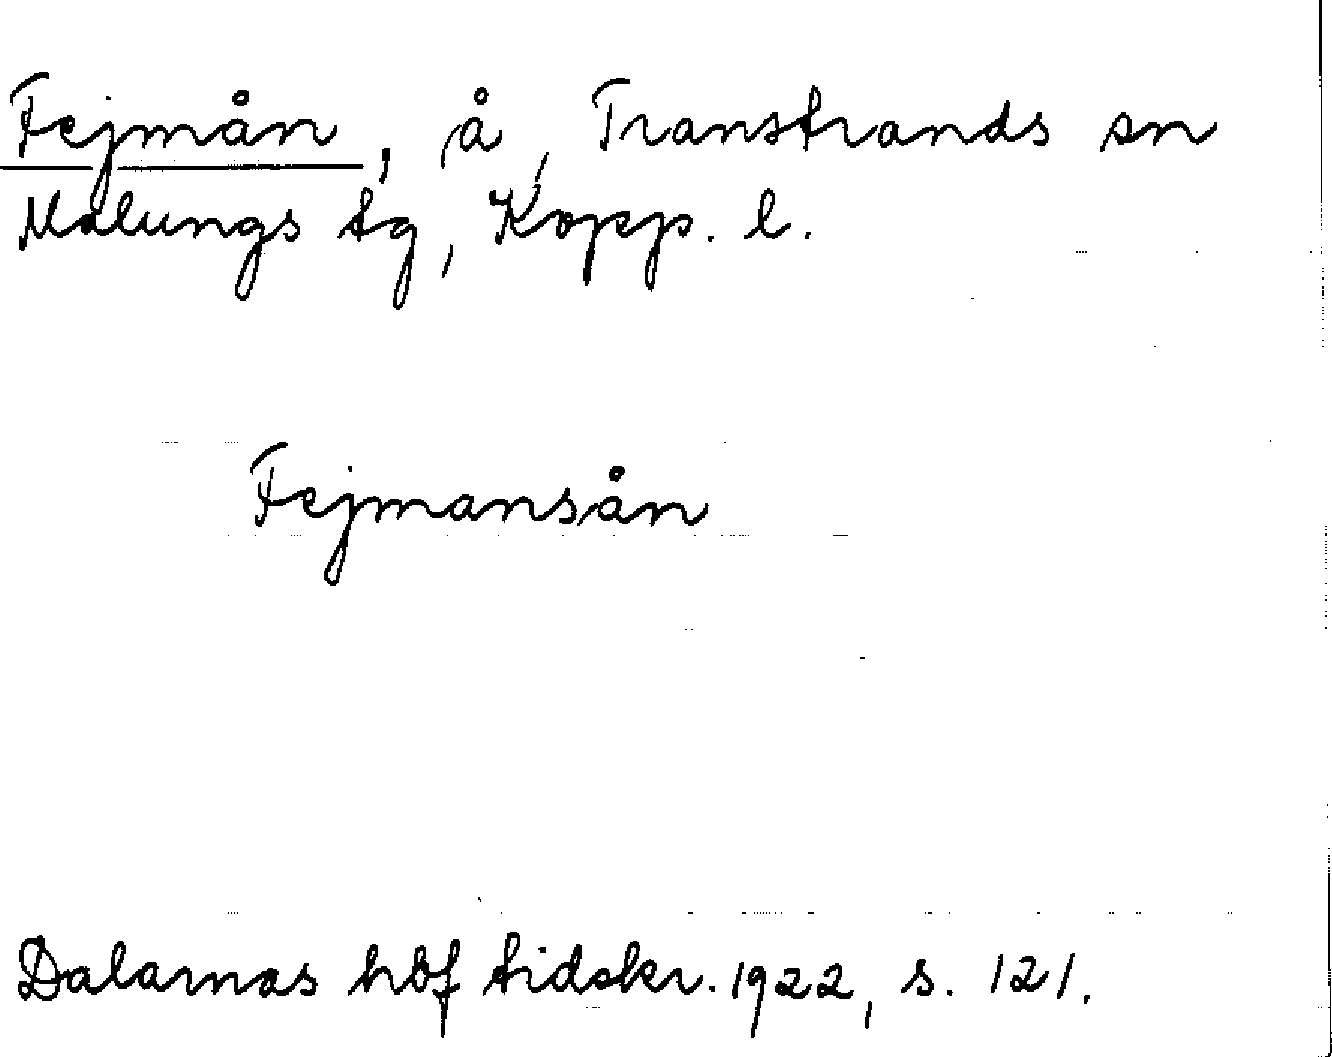 Fejmån, å, Transtrands sn
Malungs tg, Kopp. l.
Fejmansån
Dalarnas hbf tidskr. 1922, s. 121.